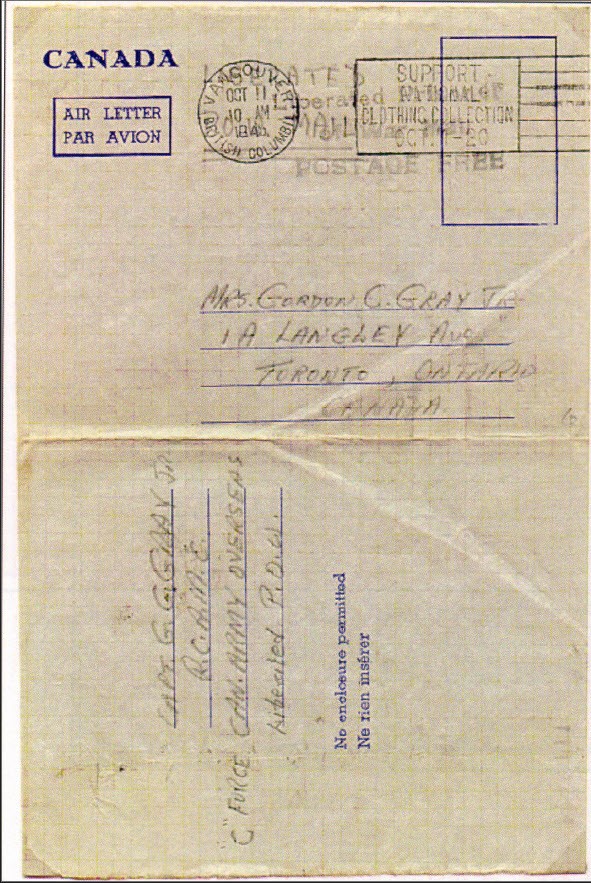 CANADA
AIR LETTER
PAR AVION
VANCOUVER
OCT 11
10 AM
BRITISH COLUMBIA
SUPPORT
NATIONAL
CLOTHING COLLECTION
OCT. 1-20
POSTAGE FREE
MRS. GORDON C. GRAY JR.
1A LANGLEY AVE
TORONTO, ONTARIO
CANADA
CAPT G. C. GRAY JR.
"C" FORCE CAN. ARMY OVERSEAS
Liberated P.O.W.
No enclosure permitted
Ne rien insérer